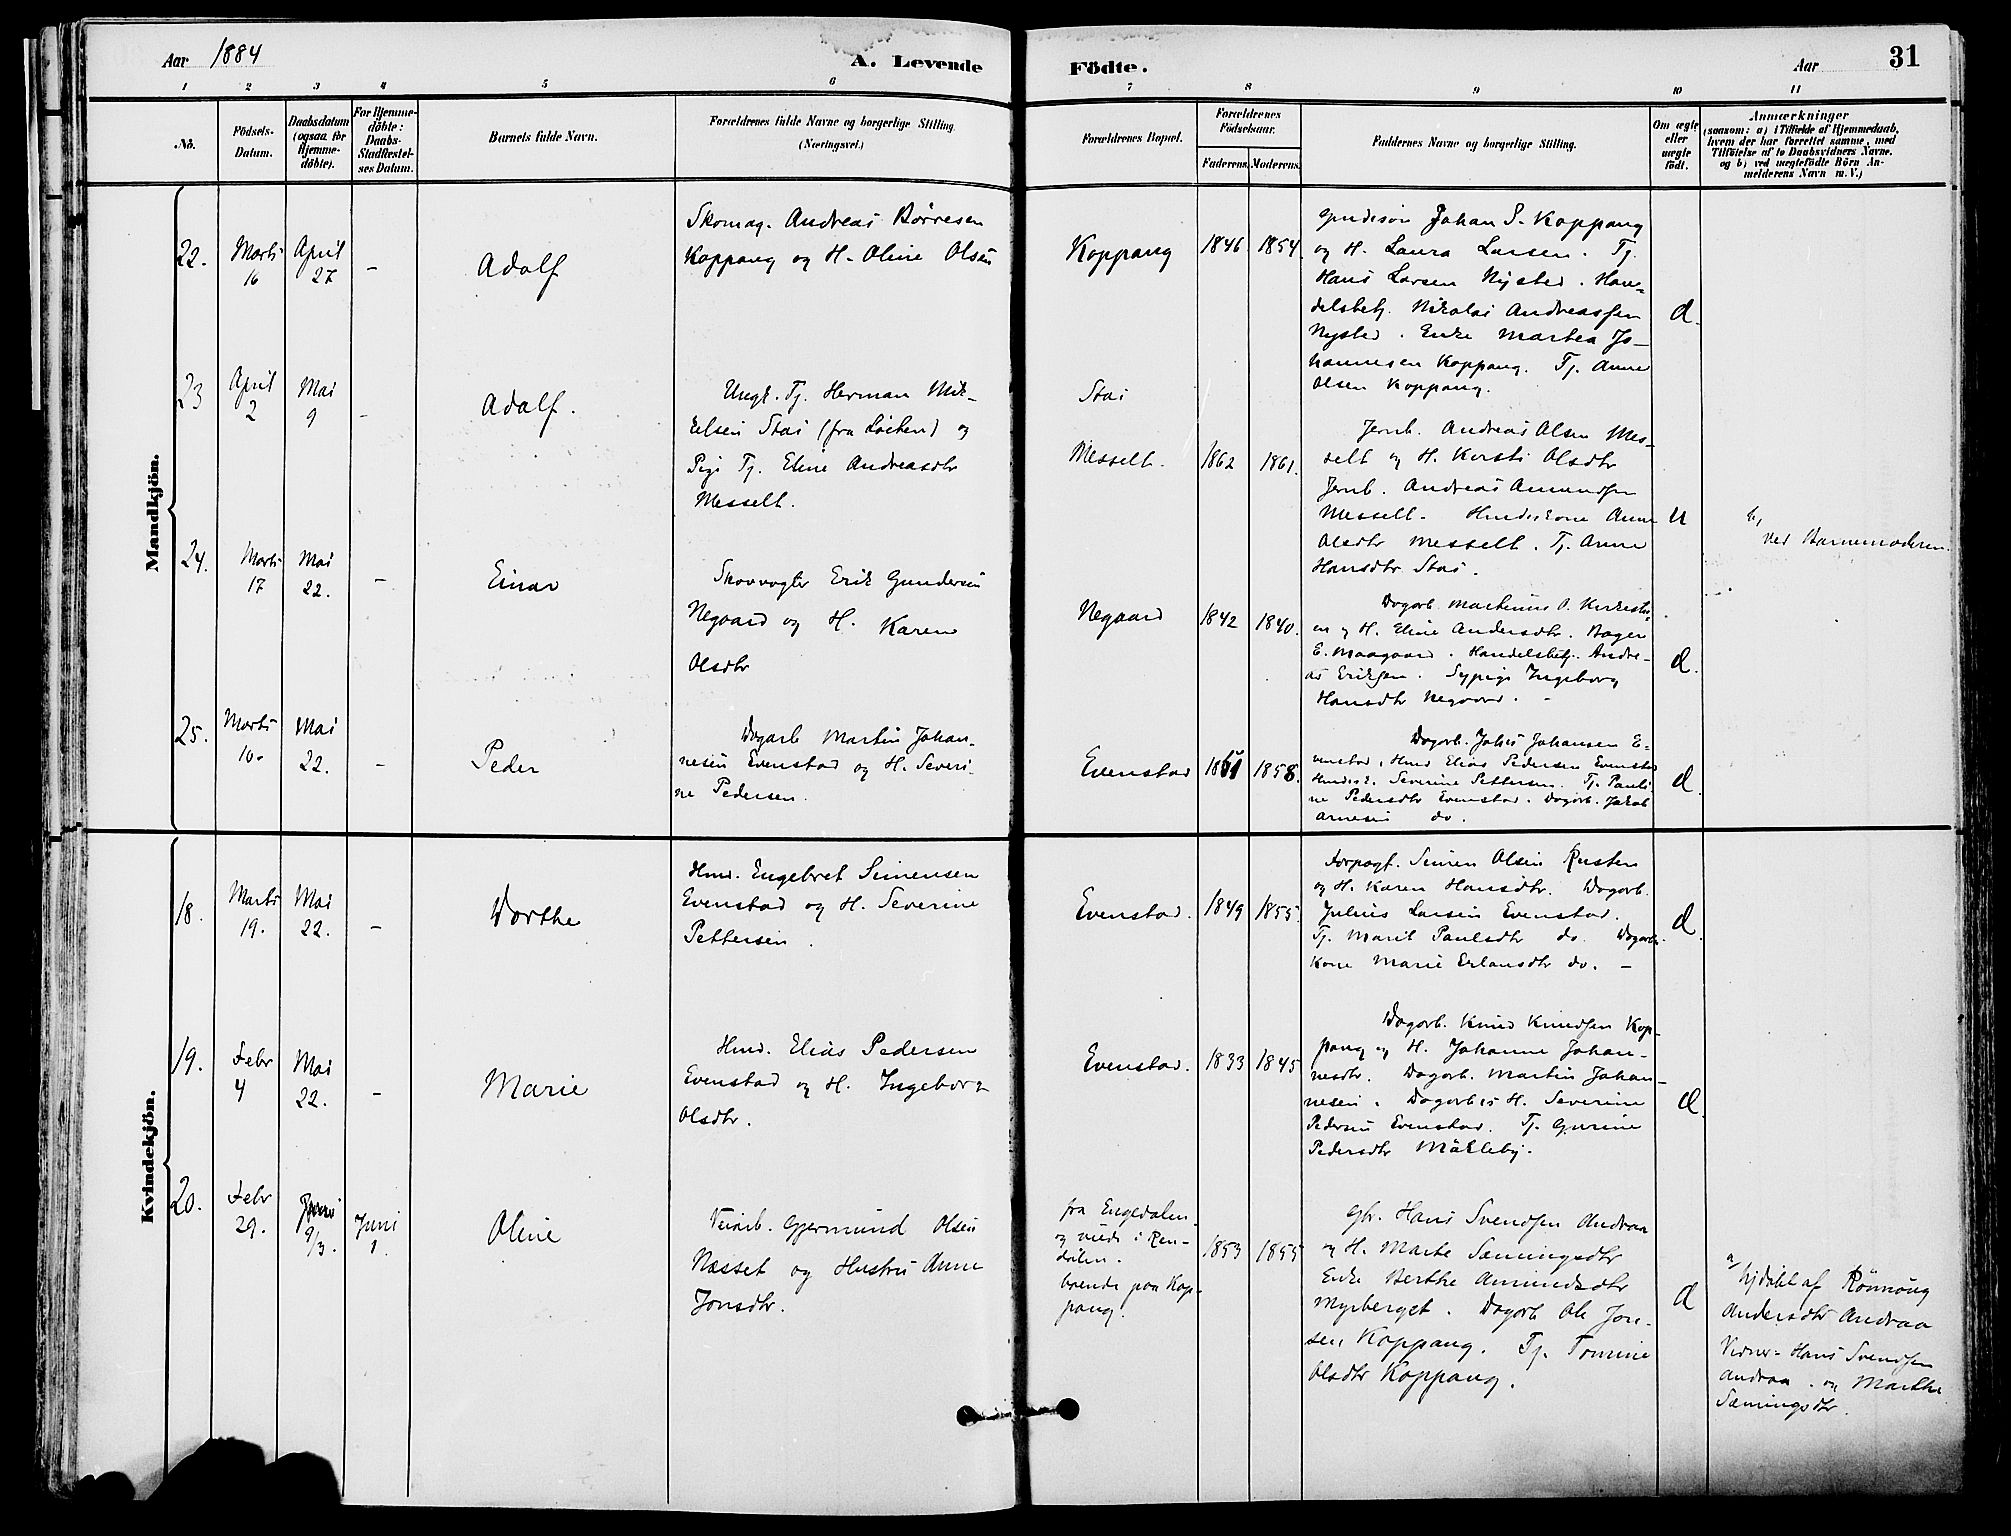 Aar 1884
A. Levende
Födte.
Aar
31
1 2 3 4 5 6 7 8 9 10 11
No.
Födsels-
Datum.
Daabsdatum
(ogsaa for
Hjemme-
döbte).
For Hjemme-
döbte:
Daabs-
Stadfæstel-
ses Datum.
Barnets fulde Navn.
Forældrenes fulde Navne og borgerlige Stilling
(Næringsvei.)
Forældrenes Bopæl.
Forældrenes
Födselsaar.
Faderens. Moderens.
Faddernes Navne og borgerlige Stilling.
Om ægte
eller
uægte
födt.
Anmærkninger
(saasom: a) i Tilfælde af Hjemmedaab,
hvem der har forrettet samme, med
Tilföielse af to Daabsvidners Navne.
og b) ved uægtefödte Börn An-
melderens Navn m. V.)
Mandkjön.
22.
Marts
16
April
27
-
Adolf
Skomag. Andreas Börresen
Koppang og H. Oline Olsen
Koppang
1846
1854.
Johan S. Koppang
og H. Laura Larsen. Tj.
Hans Larsen Nysted. Han-
delsbetj. Nikolai Andreassen
Nysted. Enke Marthea Jo-
hannesen Koppang. Tj. Anne
Olsen Koppang.
d.
23
April
2
Mai
9
-
Adolf.
Ungk. Tj. Herman Mik-
kelsen Stai (fra Löiten) og
Pige Tj. Eline Andreasdtr
Messelt.
Stai
Messelt.
1862
1861.
Jernb. Andreas Olsen Mes-
selt og H. Kersti Olsdtr
Jernb. Andreas Amundsen
Messelt. Huuskone Anne
Olsdtr Messelt. Tj. Anne
Hansdtr Stai.
u
b,
ved Barnemoderen.
24.
Marts
17
Mai
22.
-
Einar
Skovvogter Erik Gundersen
Negaard og H. Karen
Olsdtr
Negaard
1842
1840.
Dagarb. Martinus O.
og H. Eline Andersdtr. Bager
E. Maagaard. Handelsbetj. Andre-
as Eriksen. Sypige Ingeborg
Hansdtr Negaard. -
d.
25.
Marts
10.
Mai
22.
-
Peder
Dagarb Martin Johan-
nesen Evenstad og H. Severi-
ne Pedersen.
Evenstad
1858.
Dagarb. Johs Johansen E-
venstad, Hmd Elias Pedersen Evenstad
Severine Pettersen. Tj. Pauli-
ne Pedersdtr Evenstad. Dagarb. Jakob
Arnesen do.
d.
Kvindekjön.
18.
Marts
19.
Mai
22.
-
Dorthe
Hmd. Engebret Simensen
Evenstad og H. Severine
Pettersen.
Evenstad.
1849
1855.
Forpagt. Simen Olsen Rusten
og H. Karen Hansdtr. Dagarb.
Julius Larsen Evenstad.
Tj. Marit Paulsdtr do. Dagarb.
kone Marie Erlansdtr do. -
d.
19.
Febr
4
Mai
22.
-
Marie
Hmd. Elias Pedersen
Evenstad og H. Ingeborg
Olsdtr.
Evenstad.
1833
1845
Dagarb. Knud Knudsen Kop-
pang og H. Johanne Johan-
nesdtr. Dagarb. Martin Johan-
nesen. Dagarb.s H. Severine
Pedersen Evenstad. Tj. Gurine
Pedersdtr Mökleby.
d.
20.
Febr
29.
9/3.
Juni
1.
Oline
Veiarb. Gjermund Olsen
Næsset og Hustru Anne
Jonsdtr.
fra Engerdalen
og viede i Ren-
dalen.
boende paa Kop-
pang.
1853
1855
Gbr. Hans Svendsen Andraa
og H. Marte Sæmingsdtr
Enke Berthe Amundsdtr
Myrberget. Dagarb Ole Jon-
sen Koppang. Tj. Tomine
Olsdtr Koppang.
d
a,
hjdöbt af Rönnaug
Andersdtr Andraa
Vidner - Hans Svendsen
Andraa. og Marthe
Sæmingsdtr.